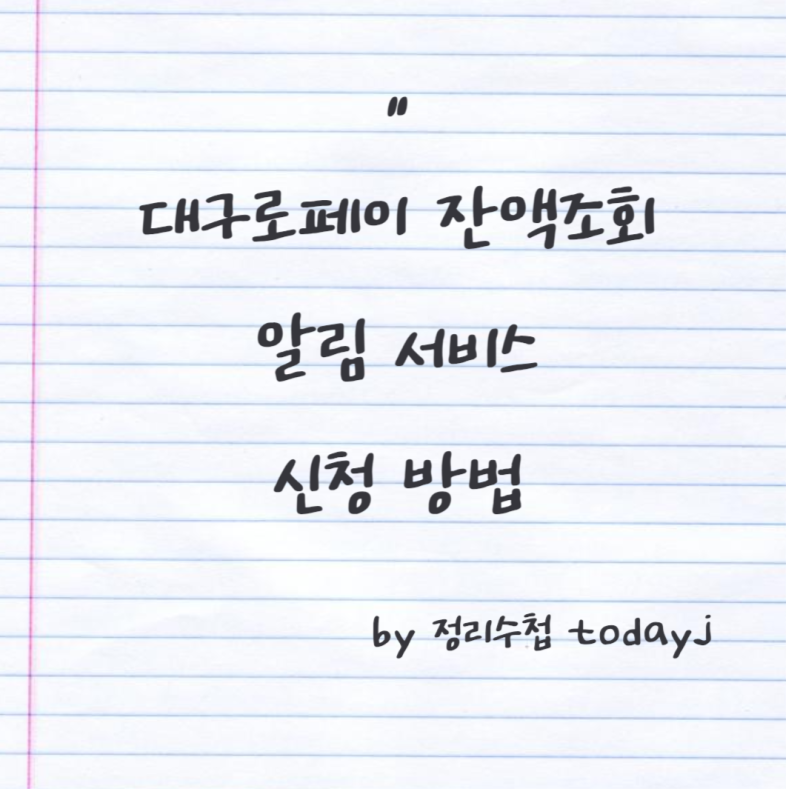 "
대구로페이 잔액조회
알림 서비스
신청 방법
by 정리수첩 todayj